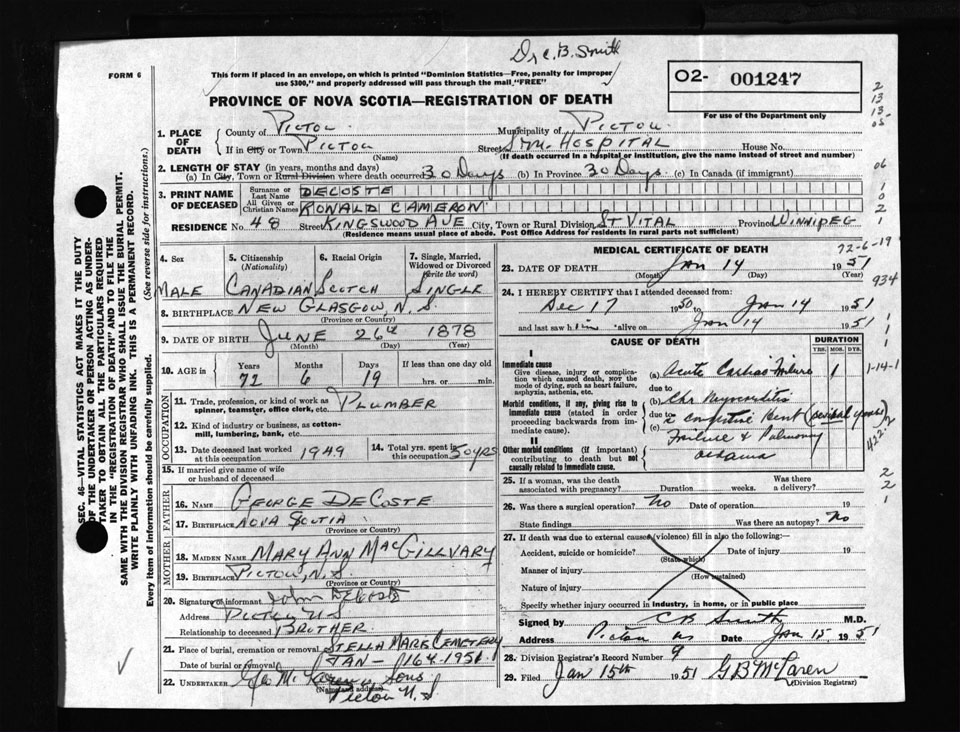 Dr. C. B. Smith
FORM 6
This form if placed in an envelope, on which is printed "Dominion Statistics—Free, penalty for improper
use $300," and properly addressed will pass through the mail "FREE"
PROVINCE OF NOVA SCOTIA—REGISTRATION OF DEATH
02- 001247
For use of the Department only
2
13
13
05
06
1
0
2
1
1. PLACE OF DEATH
County of PICTOU
Municipality of PICTOU
If in City or Town PICTOU
(Name)
Street HOSPITAL House No.
(If death occurred in a hospital or institution, give the name instead of street and number)
2. LENGTH OF STAY (in years, months and days)
(a) In City, Town or Rural Division where death occurred 30 Days (b) In Province 30 Days (c) In Canada (if immigrant)
3. PRINT NAME OF DECEASED
Surname or Last Name DECOSTE
All Given or Christian Names RONALD CAMERON
RESIDENCE No. 48 Street KINGSWOOD AVE City, Town or Rural Division ST VITAL Province WINNIPEG
(Residence means usual place of abode. Post Office Address for residents in rural parts not sufficient)
4. Sex
MALE
5. Citizenship
(Nationality)
CANADIAN
6. Racial Origin
SCOTCH
7. Single, Married, Widowed or Divorced
(write the word)
SINGLE
8. BIRTHPLACE NEW GLASGOW, N.S.
(Province or Country)
9. DATE OF BIRTH JUNE 26th 1878
(Month) (Day) (Year)
10. AGE in
Years Months Days If less than one day old
72 6 19 hrs. or min.
11. Trade, profession, or kind of work as
spinner, teamster, office clerk, etc. PLUMBER
12. Kind of industry or business, as cotton-
mill, lumbering, bank, etc.
13. Date deceased last worked
at this occupation 1949
14. Total yrs. spent in
this occupation 50 YRS
15. If married give name of wife
or husband of deceased
FATHER
16. Name GEORGE DECOSTE
17. Birthplace NOVA SCOTIA
(Province or Country)
MOTHER
18. Maiden Name MARY ANN MACGILLVARY
19. Birthplace PICTOU, N.S.
(Province or Country)
20. Signature of informant John DeCoste
Address Pictou N.S
Relationship to deceased BROTHER
21. Place of burial, cremation or removal STELLA MARE CEMETERY
Date of burial or removal JAN - 16th - 1951
22. UNDERTAKER Geo Mc Laren & Sons
(Name and address)
Pictou N.S
MEDICAL CERTIFICATE OF DEATH
72-6-19
23. DATE OF DEATH Jan 14 1951
(Month) (Day) (Year)
934
24. I HEREBY CERTIFY that I attended deceased from:
Dec 17 1950 to Jan 14 1951
and last saw him alive on Jan 14 1951
1
1
CAUSE OF DEATH
DURATION
YRS. MOS. DYS.
I
Immediate cause
Give disease, injury or complica-
tion which caused death, NOT the
mode of dying, such as heart failure,
asphyxia, asthenia, etc.
(a) Acute Cardiac Failure 1
1-14-1
due to
Morbid conditions, if any, giving rise to
immediate cause (stated in order
proceeding backwards from im-
mediate cause).
(b) Chr Myocarditis
due to
(c) congestive Heart (several years)
Failure & Pulmonary
oedema
422-2
II
Other morbid conditions (if important)
contributing to death but not
causally related to immediate cause.
25. If a woman, was the death
associated with pregnancy? Duration weeks. Was there
a delivery?
2
2
1
26. Was there a surgical operation? No Date of operation 19
State findings Was there an autopsy? No
27. If death was due to external causes (violence) fill in also the following:—
Accident, suicide or homicide? Date of injury 19
(State which)
Manner of injury
(How sustained)
Nature of injury
Specify whether injury occurred in industry, in home, or in public place
Signed by C B Smith M.D.
Address Pictou NS Date Jan 15 1951
28. Division Registrar's Record Number 9
29. Filed Jan 15th 1951 G B McLaren
(Division Registrar)
SEC. 46—VITAL STATISTICS ACT MAKES IT THE DUTY
OF THE UNDERTAKER OR PERSON ACTING AS UNDER-
TAKER TO OBTAIN ALL THE PARTICULARS REQUIRED
IN THE "REGISTRATION OF DEATH" AND TO FILE THE
SAME WITH THE DIVISION REGISTRAR WHO SHALL ISSUE THE BURIAL PERMIT.
WRITE PLAINLY WITH UNFADING INK. THIS IS A PERMANENT RECORD.
Every item of information should be carefully supplied. (See reverse side for instructions.)